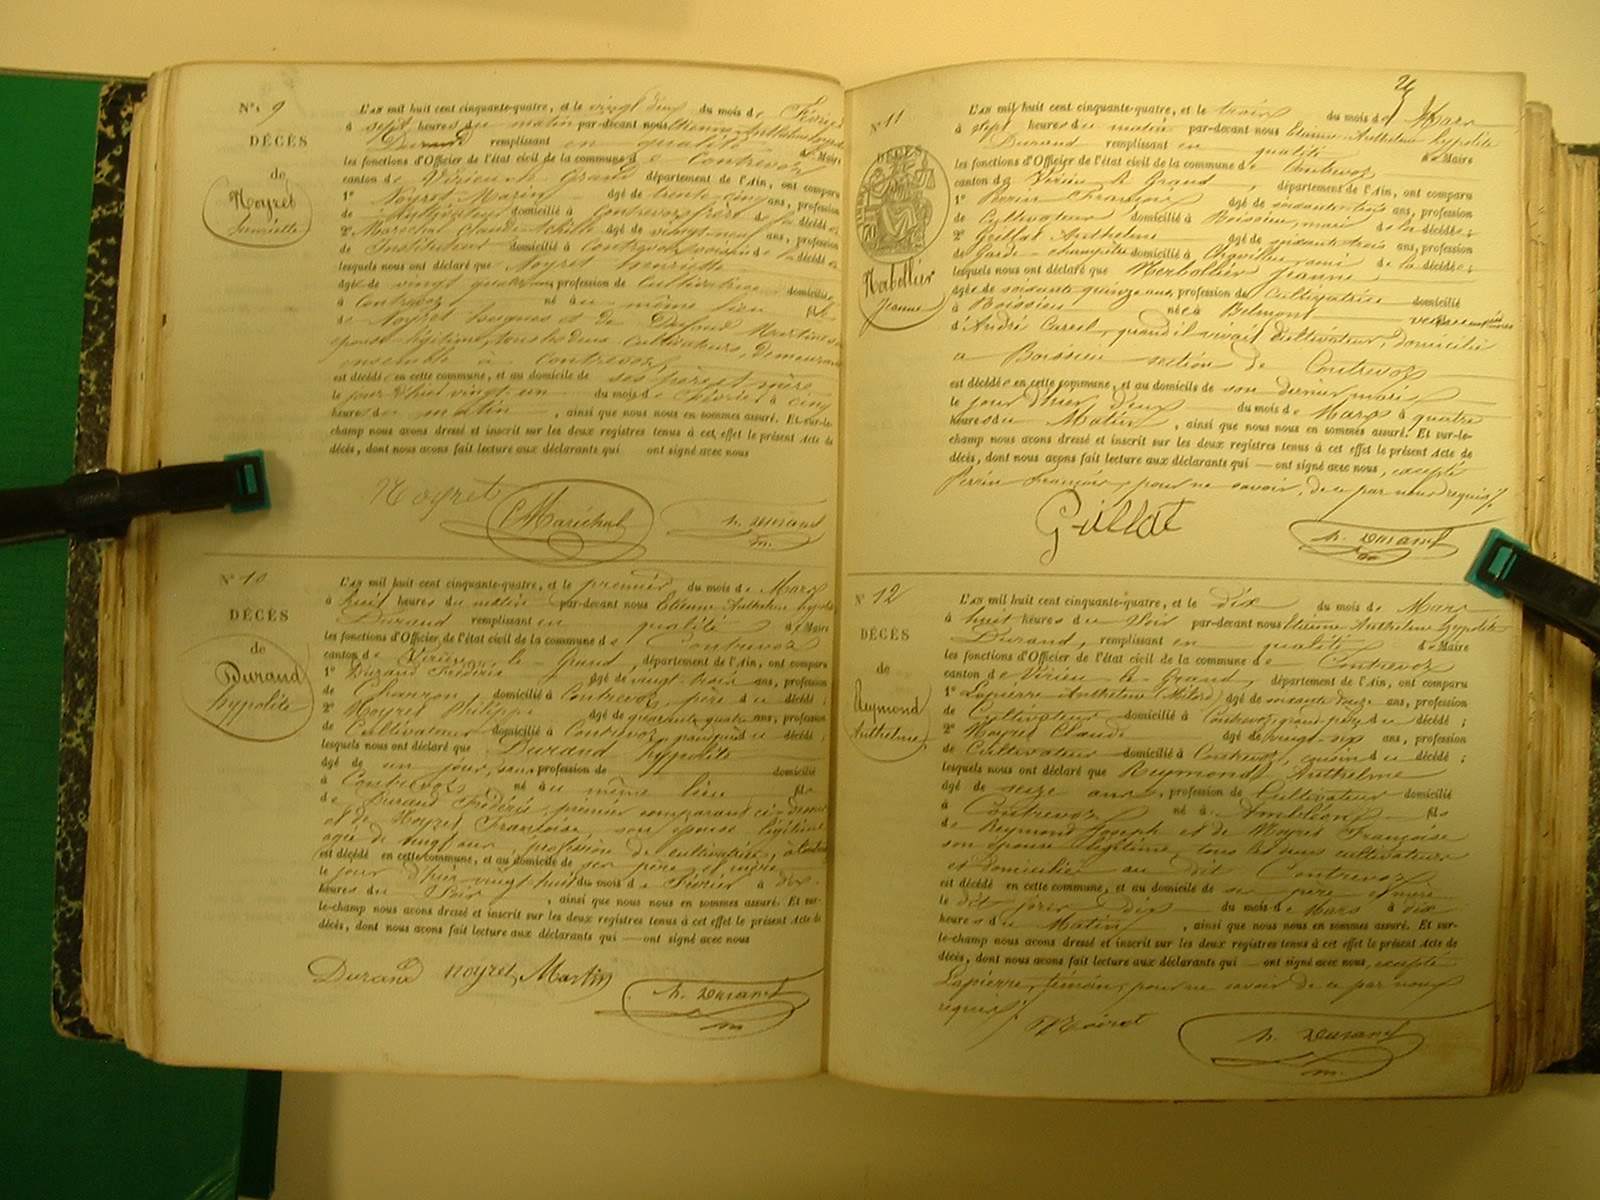 N°. 9
DÉCÈS
de
Noyret
henriette
L'AN mil huit cent cinquante-quatre, et le vingt deux du mois de Février
à sept heures du matin par-devant nous Etienne Anthelme hypolite
Durand remplissant en qualité de Maire
les fonctions d'Officier de l'état civil de la commune de Contrevoz
canton de Virieu le Grand département de l'Ain, ont comparu
1° Noyret Marin âgé de trente cinq ans, profession
de Cultivateur domicilié à Contrevoz frère de la décédée
2° Maréchal Claude âgé de vingt neuf ans, profession
de Instituteur domicilié à Contrevoz voisin de la décédée
lesquels nous ont déclaré que Noyret henriette
âgée de vingt quatre ans, profession de Cultivatrice domiciliée
à Contrevoz né au même lieu fille
de Noyret hugues et de Dufaud
épouse légitime, tous les deux Cultivateurs, demeurant
ensemble à Contrevoz
est décédée en cette commune, et au domicile de ses père et mère
le jour d'hier vingt-un du mois de Février à cinq
heures du matin, ainsi que nous nous en sommes assuré. Et sur-le-
champ nous avons dressé et inscrit sur les deux registres tenus à cet effet le présent Acte de
décès, dont nous avons fait lecture aux déclarants qui ont signé avec nous
Noyret C Maréchal h. Durand
N° 10
DÉCÈS
de
Durand
hypolite
L'AN mil huit cent cinquante-quatre, et le premier du mois de Mars
à huit heures du matin par-devant nous Etienne Anthelme hypolite
Durand remplissant en qualité de Maire
les fonctions d'Officier de l'état civil de la commune de Contrevoz
canton de Virieu le Grand, département de l'Ain, ont comparu
1° Durand Frédéric âgé de vingt-trois ans, profession
de Charron domicilié à Contrevoz, père du décédé;
2° Noyret Philippe âgé de quarante quatre ans, profession
de Cultivateur domicilié à Contrevoz du décédé;
lesquels nous ont déclaré que Durand hypolite
âgé de un jour, sans profession de domicilié
à Contrevoz, né au même lieu fils
de Durand Frédéric, premier comparant
et de Noyret Françoise, son épouse légitime
agée de vingt ans profession de cultivatrice, à Contrevoz
est décédé en cette commune, et au domicile de ses père et mère
le jour d'hier vingt-huit du mois de Février à dix
heures du Soir, ainsi que nous nous en sommes assuré. Et sur-
le-champ nous avons dressé et inscrit sur les deux registres tenus à cet effet le présent Acte de
décès, dont nous avons fait lecture aux déclarants qui ont signé avec nous
Durand noyret Martin h. Durand
N° 11
DÉCÈS
Mabellier
Jeanne
L'AN mil huit cent cinquante-quatre, et le trois du mois de Mars
à sept heures du matin par-devant nous Etienne Anthelme hypolite
Durand remplissant en qualité de Maire
les fonctions d'Officier de l'état civil de la commune de Contrevoz
canton de Virieu le Grand, département de l'Ain, ont comparu
1° Perrin François âgé de soixante trois ans, profession
de Cultivateur domicilié à Boissieu, de la décédée;
2° Guillat Anthelme âgé de soixante trois ans, profession
de garde-champêtre domicilié à ami de la décédée;
lesquels nous ont déclaré que Jeanne
âgée de soixante quinze ans, profession de Cultivatrice domicilié
à Boissieu née à Belmont
d'André quand il vivait Cultivateur, domicilié
à Boissieu section de Contrevoz
est décédée en cette commune, et au domicile de son dernier mari
le jour d'hier deux du mois de Mars à quatre
heures du Matin, ainsi que nous nous en sommes assuré. Et sur-le-
champ nous avons dressé et inscrit sur les deux registres tenus à cet effet le présent Acte de
décès, dont nous avons fait lecture aux déclarants qui ont signé avec nous, excepté
Perrin François, pour ne savoir, de ce par nous requis.
Guillat h. Durand
N° 12
DÉCÈS
de
Reymond
Anthelme
L'AN mil huit cent cinquante-quatre, et le dix du mois de Mars
à huit heures du Soir par-devant nous Etienne Anthelme hypolite
Durand, remplissant en qualité de Maire
les fonctions d'Officier de l'état civil de la commune de Contrevoz
canton de Virieu le Grand, département de l'Ain, ont comparu
1° Lapierre Anthelme âgé de soixante ans, profession
de Cultivateur domicilié à Contrevoz, grand-père du décédé;
2° Noyret Claude âgé de vingt-six ans, profession
de Cultivateur domicilié à Contrevoz, cousin du décédé;
lesquels nous ont déclaré que Reymond Anthelme
âgé de seize ans, profession de Cultivateur domicilié
à Contrevoz né à Ambléon fils
de Reymond Joseph et de Noyret Françoise
son épouse légitime tous les deux cultivateurs
et domiciliés au dit Contrevoz
est décédé en cette commune, et au domicile de ses père et mère
le dit jour dix du mois de Mars à dix
heures du Matin, ainsi que nous nous en sommes assuré. Et sur-
le-champ nous avons dressé et inscrit sur les deux registres tenus à cet effet le présent Acte de
décès, dont nous avons fait lecture aux déclarants qui ont signé avec nous, excepté
Lapierre, témoin, pour ne savoir de ce par nous
requis
Noiret h. Durand